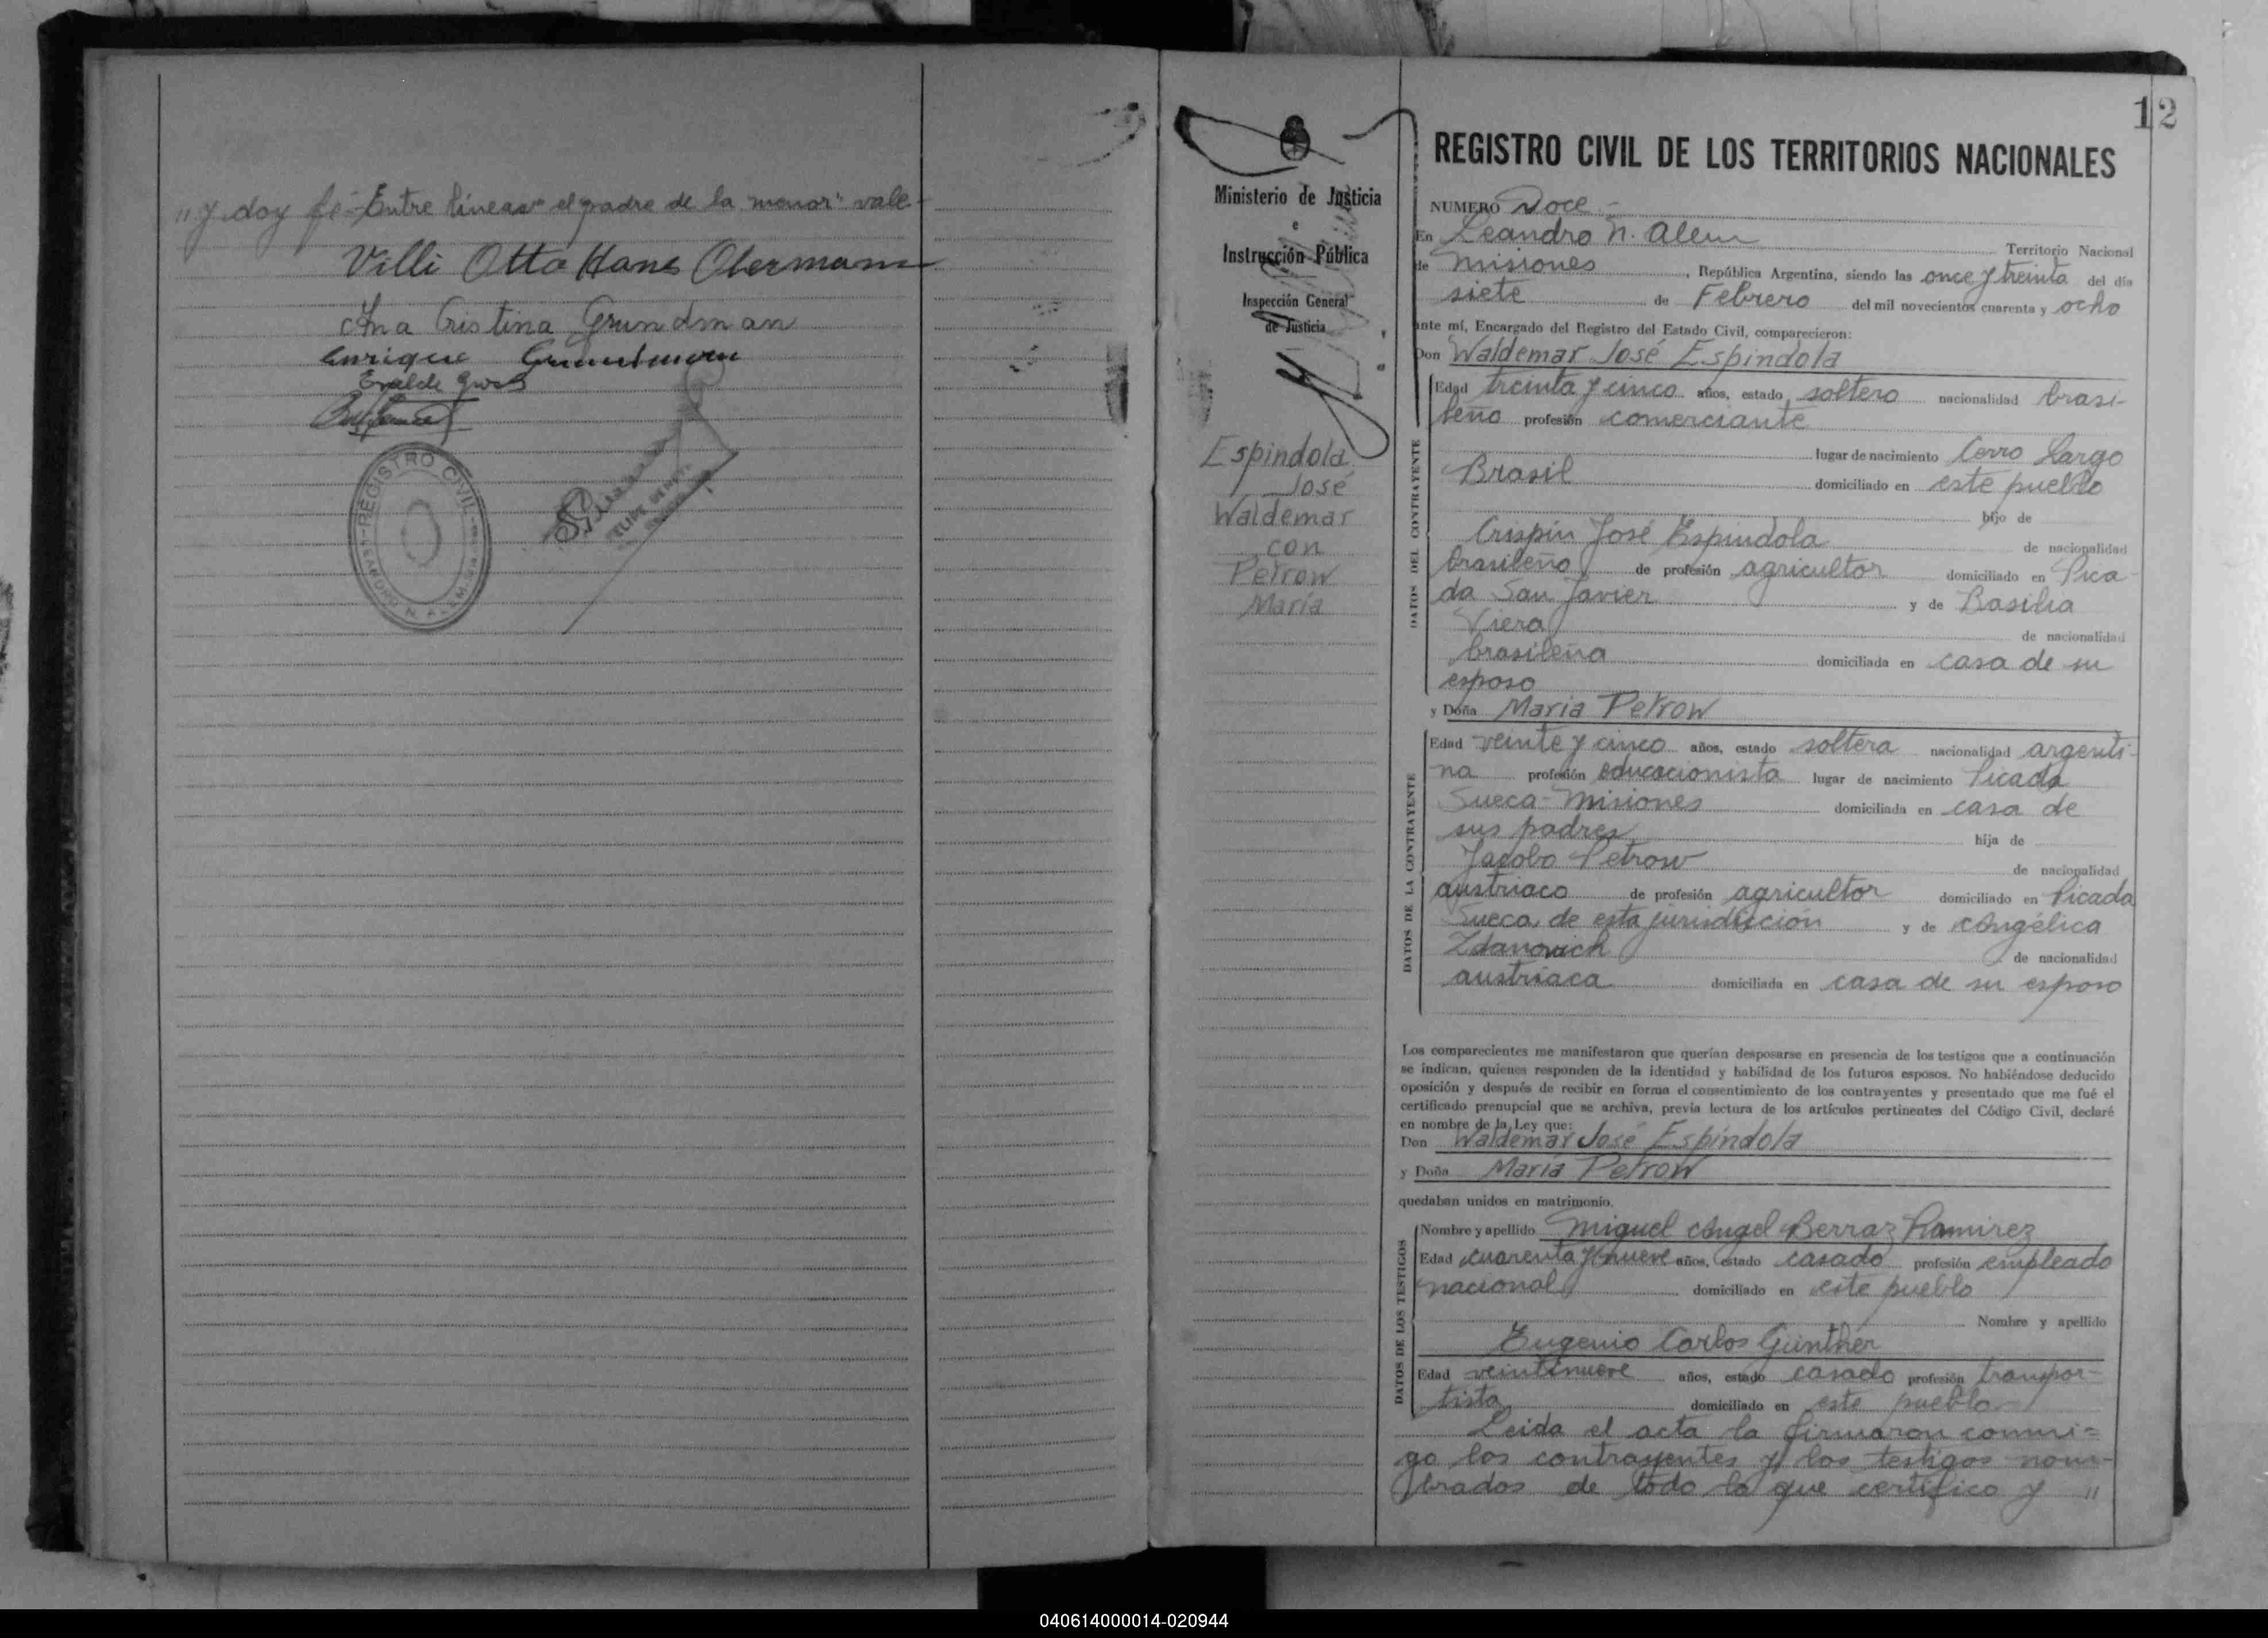 "y doy fé-Entre lineas "el padre de la menor" vale-
Villi Otto Hans Obermann
Ana Cristina Grundman
Enrique
REGISTRO CIVIL
LEANDRO N. ALEM
12
Ministerio de Justicia
e
Instrucción Pública
Inspección General
de Justicia
Espindola
José
Waldemar
con
Petrow
María
REGISTRO CIVIL DE LOS TERRITORIOS NACIONALES
NUMERO Doce.-
En Leandro N. Alem Territorio Nacional
de Misiones, República Argentina, siendo las once y treinta del día
siete de Febrero del mil novecientos cuarenta y ocho
ante mí, Encargado del Registro del Estado Civil, comparecieron:
Don Waldemar José Espindola
DATOS DEL CONTRAYENTE
Edad treinta y cinco años, estado soltero nacionalidad brasi-
leño profesión comerciante
lugar de nacimiento Cerro Largo
Brasil domiciliado en este pueblo
hijo de
Crispin José Espindola de nacionalidad
brasileño de profesión agricultor domiciliado en Pica-
da San Javier y de Basilia
Viera de nacionalidad
brasileña domiciliada en casa de su
esposo
y Doña María Petrow
DATOS DE LA CONTRAYENTE
Edad veinte y cinco años, estado soltera nacionalidad argenti-
na profesión educacionista lugar de nacimiento Picada
Sueca-Misiones domiciliada en casa de
sus padres hija de
Jacobo Petrow de nacionalidad
austriaco de profesión agricultor domiciliado en Picada
Sueca de esta jurisdicción y de Angélica
Zdanovich de nacionalidad
austríaca domiciliada en casa de su esposo
Los comparecientes me manifestaron que querían desposarse en presencia de los testigos que a continuación
se indican, quienes responden de la identidad y habilidad de los futuros esposos. No habiéndose deducido
oposición y después de recibir en forma el consentimiento de los contrayentes y presentado que me fué el
certificado prenupcial que se archiva, previa lectura de los artículos pertinentes del Código Civil, declaré
en nombre de la Ley que:
Don Waldemar José Espíndola
y Doña María Petrow
quedaban unidos en matrimonio.
DATOS DE LOS TESTIGOS
Nombre y apellido Miguel Angel Berraz Ramirez
Edad cuarenta y nueve años, estado casado profesión empleado
nacional domiciliado en este pueblo
Nombre y apellido
Eugenio Carlos Günther
Edad veintinueve años, estado casado profesión transpor-
tista domiciliado en este pueblo-
Leida el acta la firmaron conmi=
go los contrayentes y los testigos nom-
brados de todo lo que certifico y "
040614000014-020944